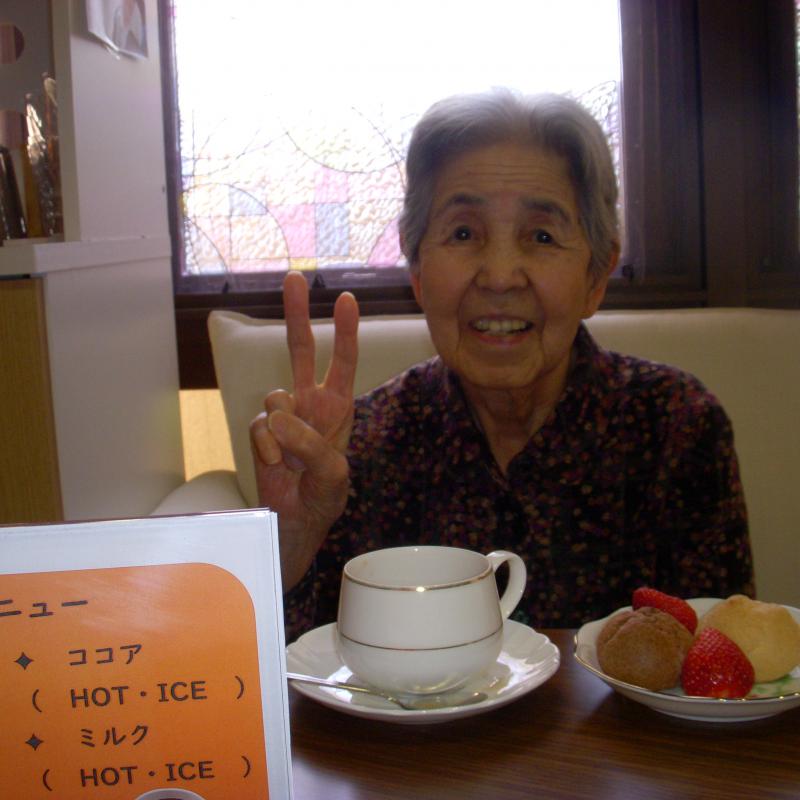 ニュー
✦ ココア
( HOT・ICE )
✦ ミルク
( HOT・ICE )